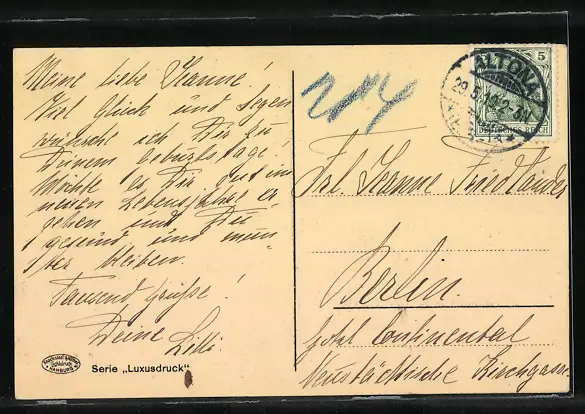 Meine liebe Jeanne!
Viel Glück und Segen
wünsche ich Dir zu
Deinem Geburtstage!
Möchte es Dir gut im
neuen Lebensjahre er-
gehen und Du
gesund und mun-
ter bleiben.
Tausend Grüße!
Deine Lilli
Serie „Luxusdruck“
HAMBURG
204
ALTONA
5
DEUTSCHES REICH
Frl Jeanne Friedländer
Berlin.
Hotel Continental
Neustädtische Kirchgasse